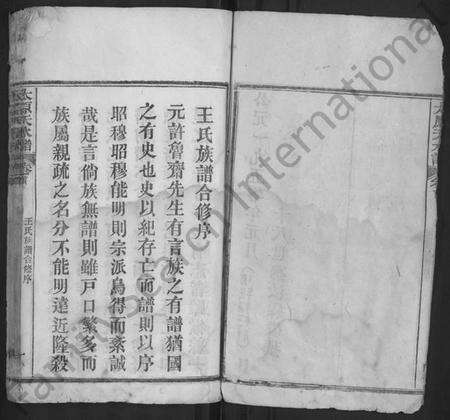 王氏族譜合修序
元許魯齋先生有言族之有譜猶國
之有史也史以紀存亡而譜則以序
昭穆昭穆能明則宗派烏得而紊誠
哉是言倘族無譜則雖戸口繁多而
族屬親疏之名分不能明遠近隆殺
太原王氏譜
卷首
王氏族譜合修序
FamilySearch International